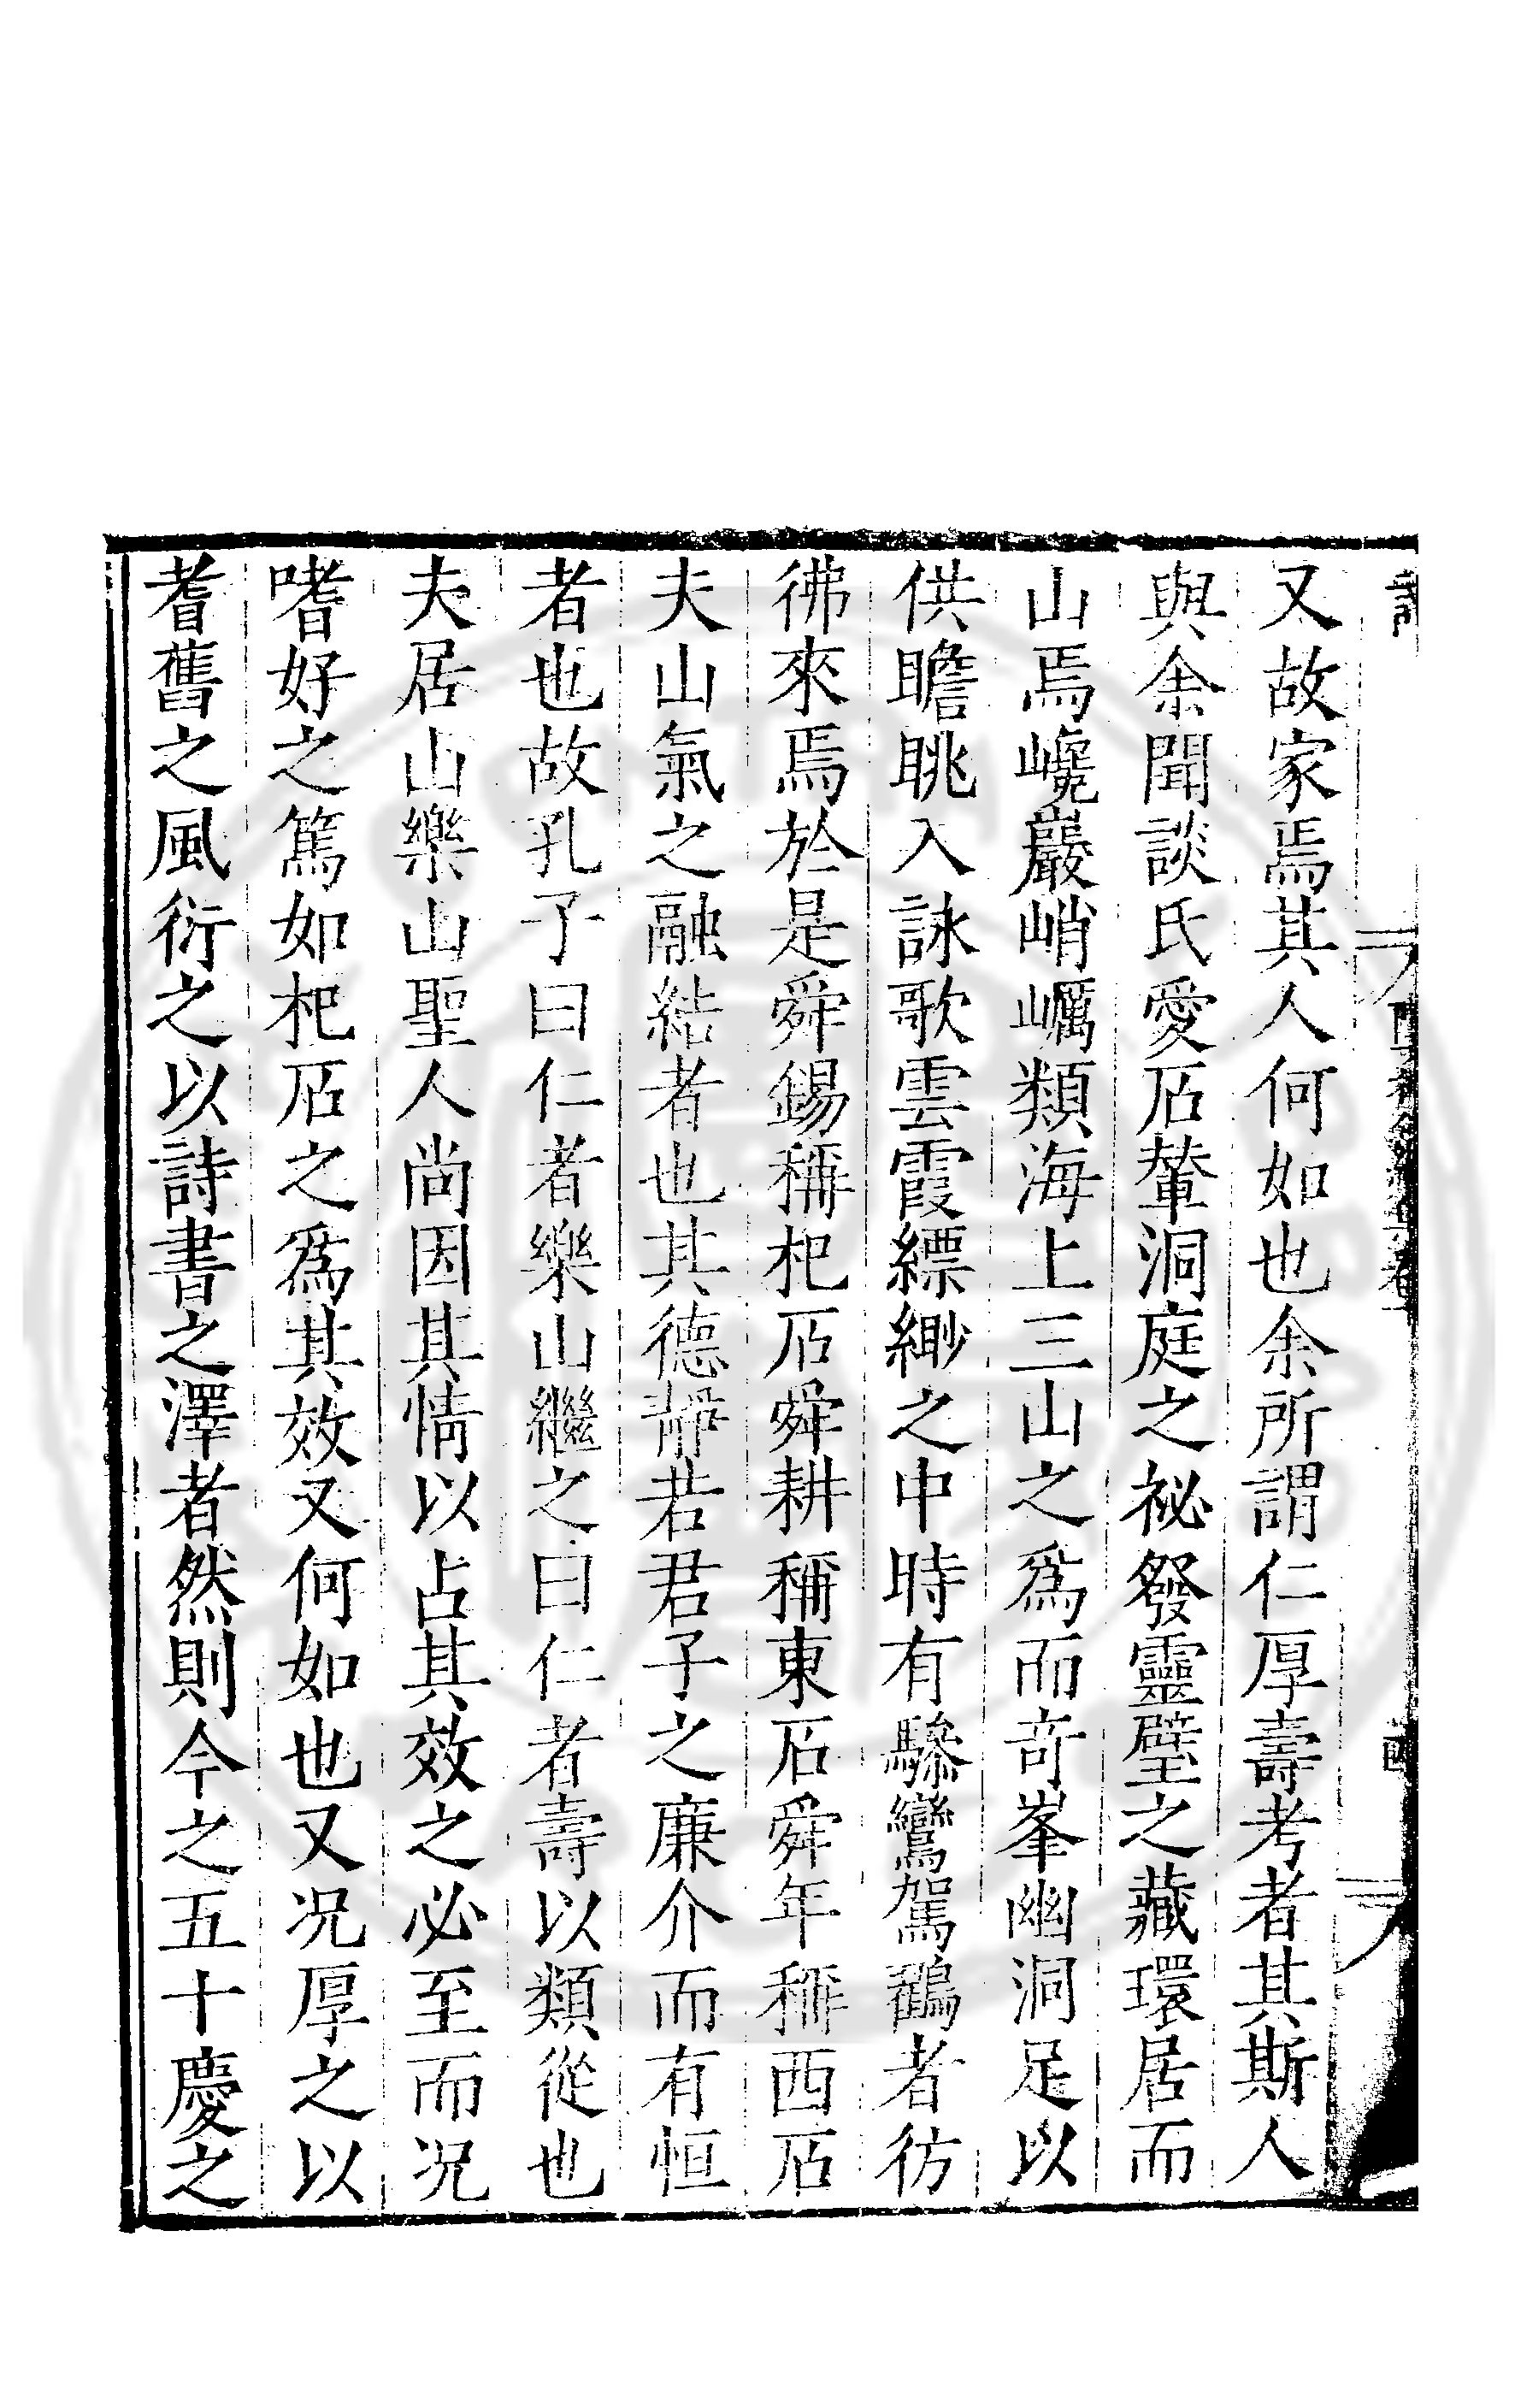 又故家焉其人何如也余所謂仁厚壽考者其斯人
與余聞談氏愛石輦洞庭之祕發靈璧之藏環居而
山焉巉巖峭巁類海上三山之爲而竒峯幽洞足以
供瞻眺入詠歌雲霞縹緲之中時有驂鸞駕鶴者彷
彿來焉於是舜錫稱杞石舜耕稱東石舜年稱西石
夫山氣之融結者也其德静若君子之廉介而有恒
者也故孔子曰仁者樂山繼之曰仁者壽以類從也
夫居山樂山聖人尚因其情以占其效之必至而况
嗜好之篤如杞石之爲其效又何如也又况厚之以
耆舊之風衍之以詩書之澤者然則今之五十慶之